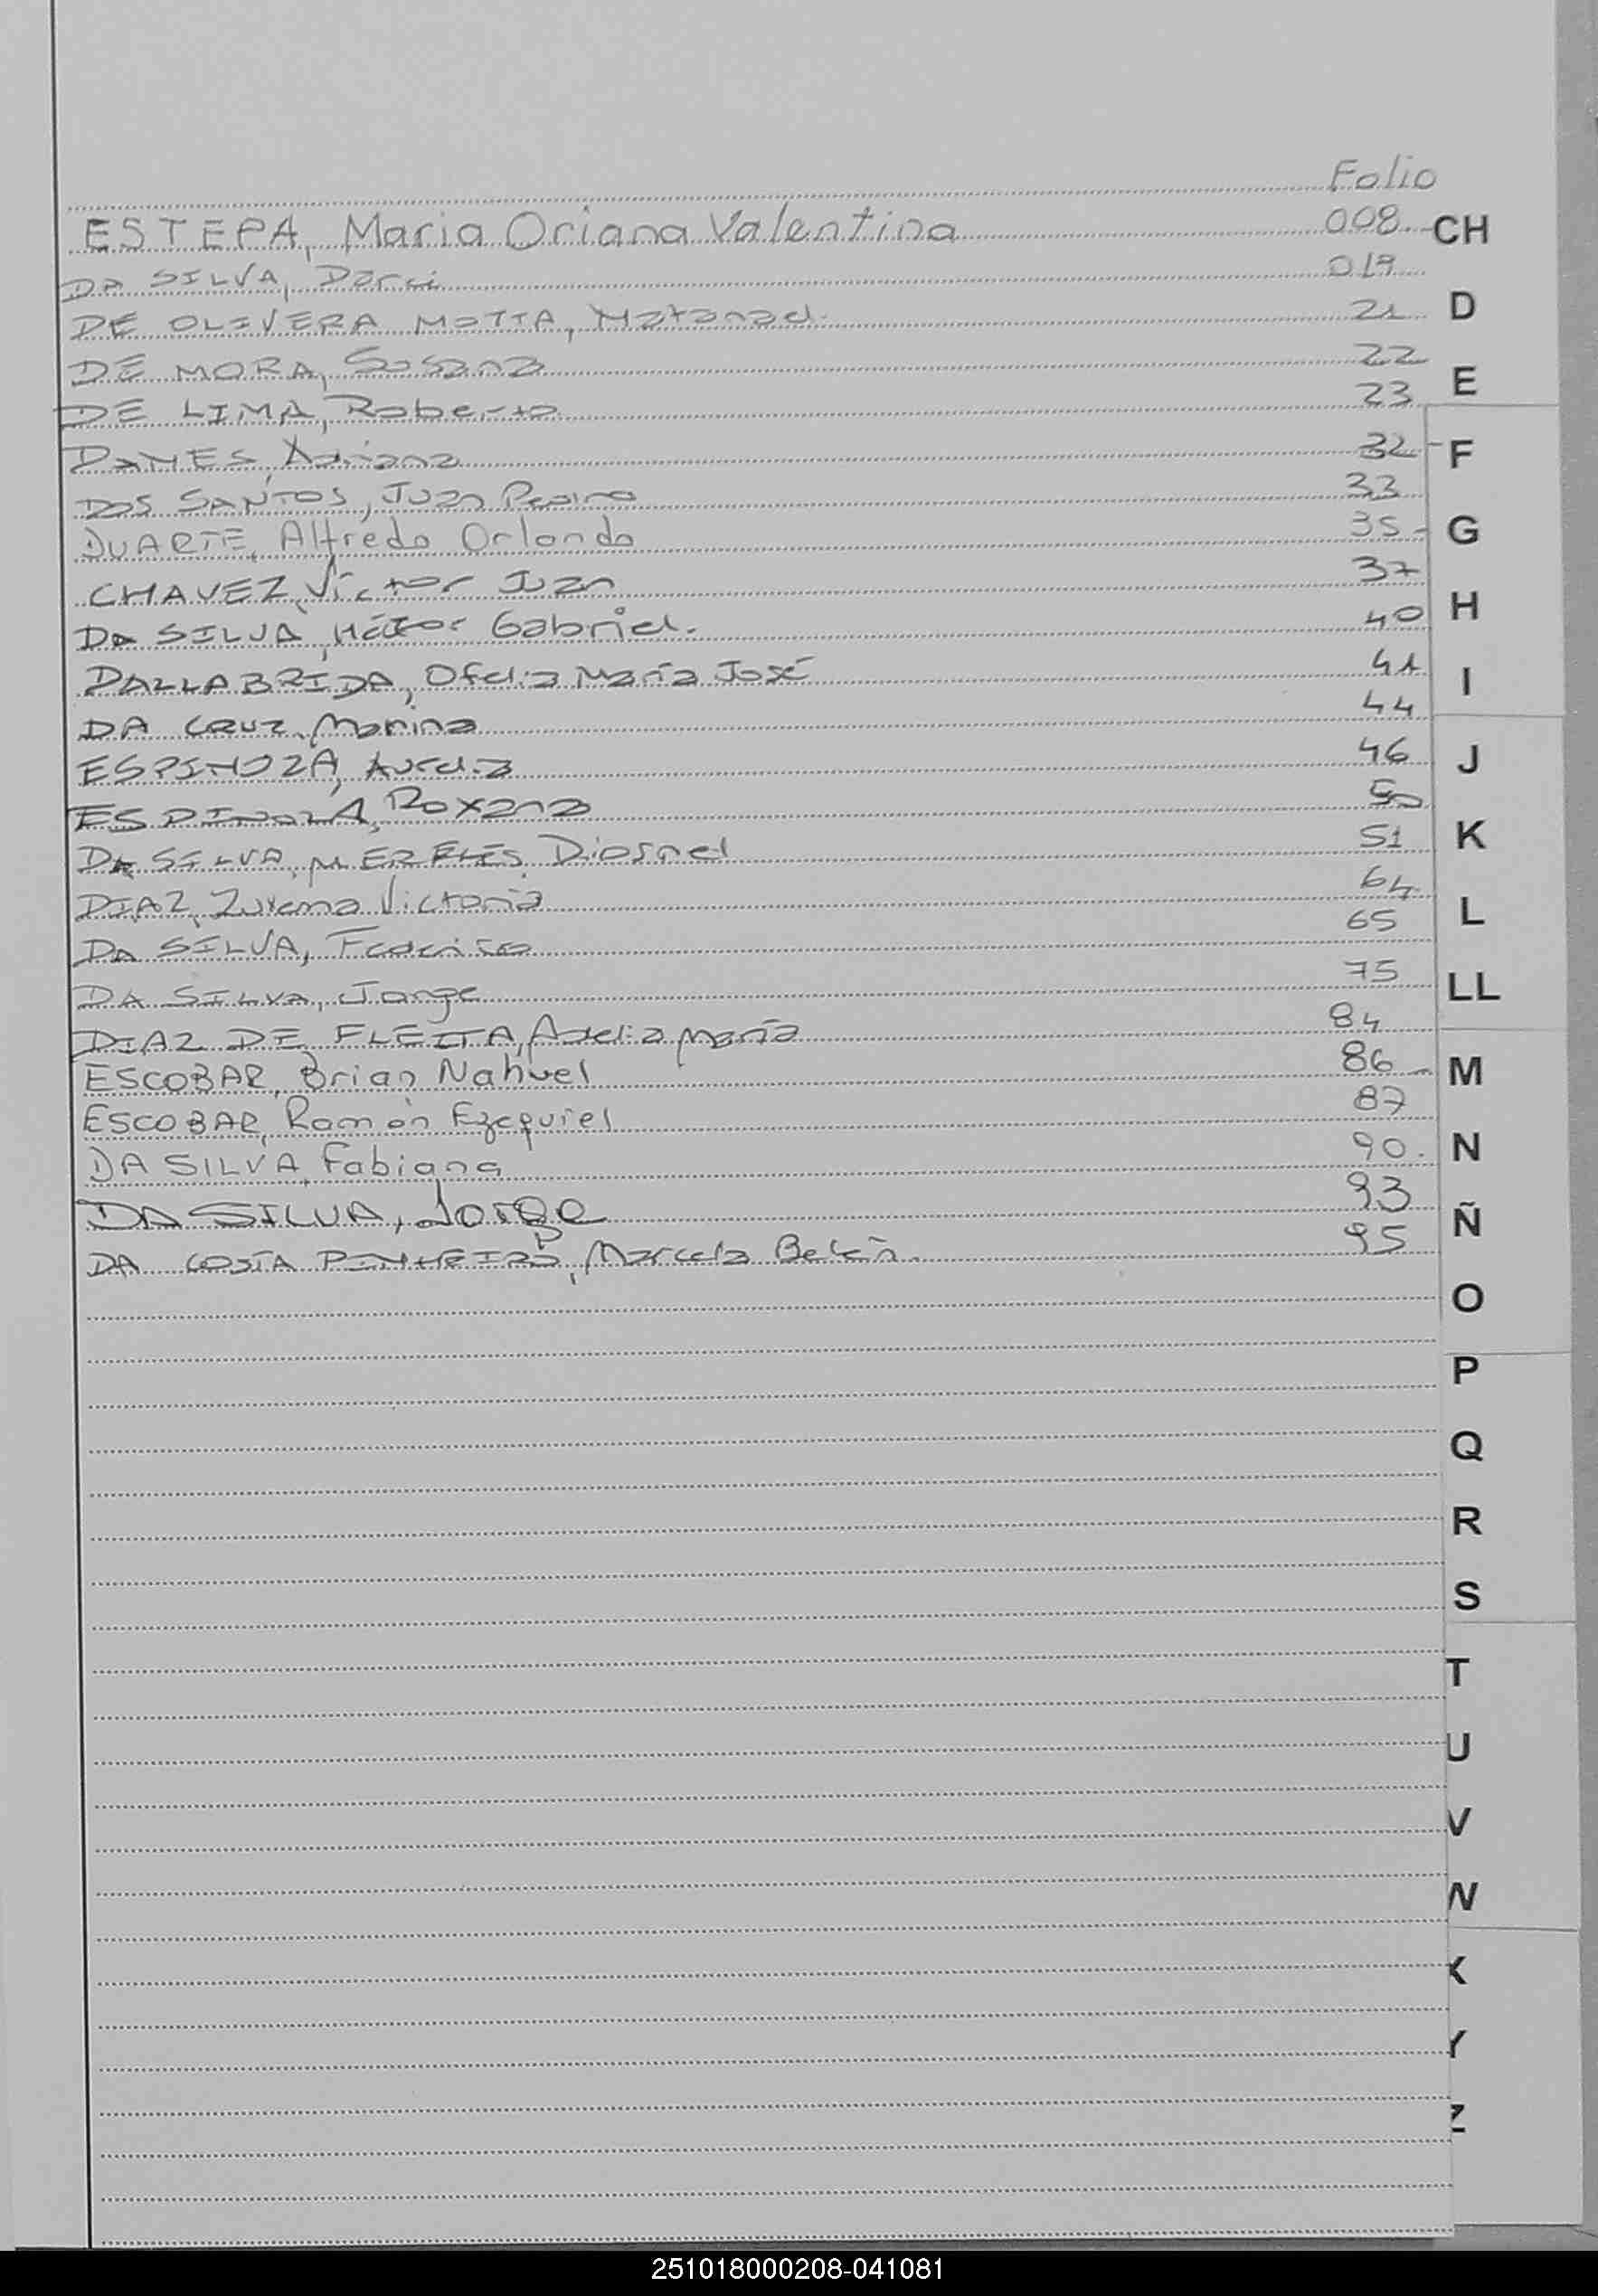 Folio
ESTEPA, Maria Oriana Valentina 008.
DA SILVA, Darci 019
DE OLIVERA MOTTA, Natanael. 21
DE MORA, Susana 22
DE LIMA, Roberto 23
DAMES, Adriana 32
DOS SANTOS, Juan Pedro 33
DUARTE, Alfredo Orlando 35-
CHAVEZ, Víctor Juan 37
DA SILVA, Héctor Gabriel. 40
DALLABRIDA, Ofelia María José 41
DA CRUZ, Marina 44
ESPINOZA, Aurelia 46
ESPINOLA, Roxana 50
DA SILVA, MERELES, Diosnel 51
DIAZ, Zulema Victoria 64
DA SILVA, Federico 65
DA SILVA, Jorge 75
DIAZ DE FLEITA, Adelia María 84
ESCOBAR, Brian Nahuel 86
ESCOBAR, Ramón Ezequiel 87
DA SILVA, Fabiana 90.
DA SILVA, Jorge 93
DA COSTA PINHEIRO, Marcela Belén. 95
CH
D
E
F
G
H
I
J
K
L
LL
M
N
Ñ
O
P
Q
R
S
T
U
V
W
X
Y
Z
251018000208-041081